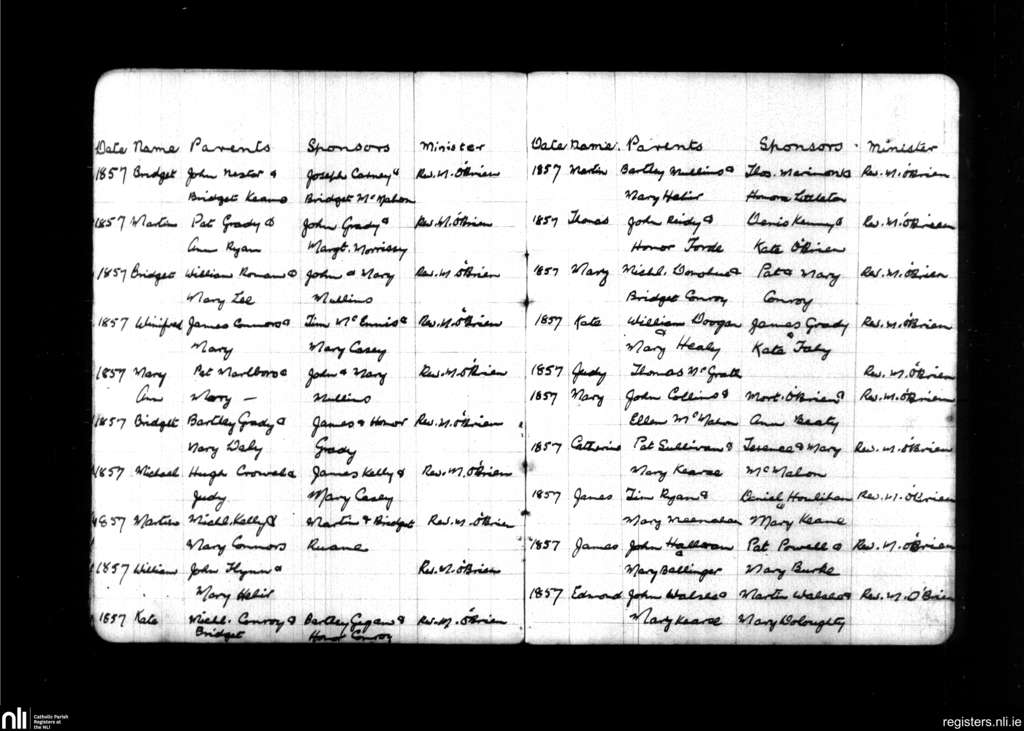 Date Name Parents Sponsors Minister
1857 Bridget John Nestor & Joseph Carney & Rev. M. O'Brien
Bridget Keane Bridget McMahon
1857 Martin Pat Grady & John Grady & Rev. M. O'Brien
Ann Ryan Margt. Morrissy
1857 Bridget William Ronan & John & Mary Rev. M. O'Brien
Mary Lee Mullins
1857 Winifred James Connors & Tim McEnnis & Rev. M. O'Brien
Mary Mary Casey
1857 Mary Pat Marlboro & John & Mary Rev. M. O'Brien
Ann Mary — Mullins
1857 Bridget Bartley Grady & James & Honor Rev. M. O'Brien
Mary Daly Grady
1857 Michael Hugh & James Kelly & Rev. M. O'Brien
Judy Mary Casey
1857 Martin Michl. Kelly & Martin & Bridget Rev. M. O'Brien
Mary Connors Ruane
1857 William John Flynn & Rev. M. O'Brien
Mary Helir
1857 Kate Michl. Conroy & Bartley Gegan & Rev. M. O'Brien
Bridget Honor Conroy
Date Name. Parents Sponsors. Minister
1857 Martin Bartley Mullins & Thos. & Rev. M. O'Brien
Mary Helir Honora Littleton
1857 Thomas John Reidy & Denis Kenny & Rev. M. O'Brien
Honor Forde Kate O'Brien
1857 Mary Michl. Donohue & Pat & Mary Rev. M. O'Brien
Bridget Conroy Conroy
1857 Kate William Doogan James Grady Rev. M. O'Brien
& Mary Healy & Kate Fahy
1857 Judy Thomas McGrath Rev. M. O'Brien
1857 Mary John Collins & Mort. O'Brien & Rev. M. O'Brien
Ellen McMahon Ann Beaty
1857 Catherine Pat Sullivan & Terence & Mary Rev. M. O'Brien
Mary Kearse McMahon
1857 James Tim Ryan & Daniel Houlihan Rev. M. O'Brien
Mary Meenahan & Mary Keane
1857 James John Halloran Pat Powell & Rev. M. O'Brien
& Mary Ballinger Mary Burke
1857 Edmond John Walsh & Martin Walsh & Rev. M. O'Brien
Mary Kearse Mary Doloughty
nli Catholic Parish
Registers at
the NLI
registers.nli.ie